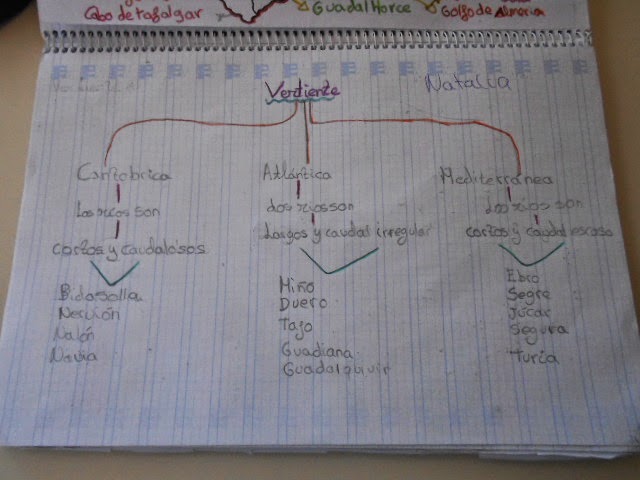 Cabo de trafalgar
Guadalhorce
Golfo de Almeria
Vertiente
Natalia
Cantobrica
Atlántica
Mediterránea
Los rios son
Los rios son
Los rios son
cortos y caudalosos
Largos y caudal irregular
cortos y caudal escaso
Bidasolla
Nervión
Nalón
Navia
Miño
Duero
Tajo
Guadiana
Guadalquivir
Ebro
Segre
Júcar
Segura
Turia